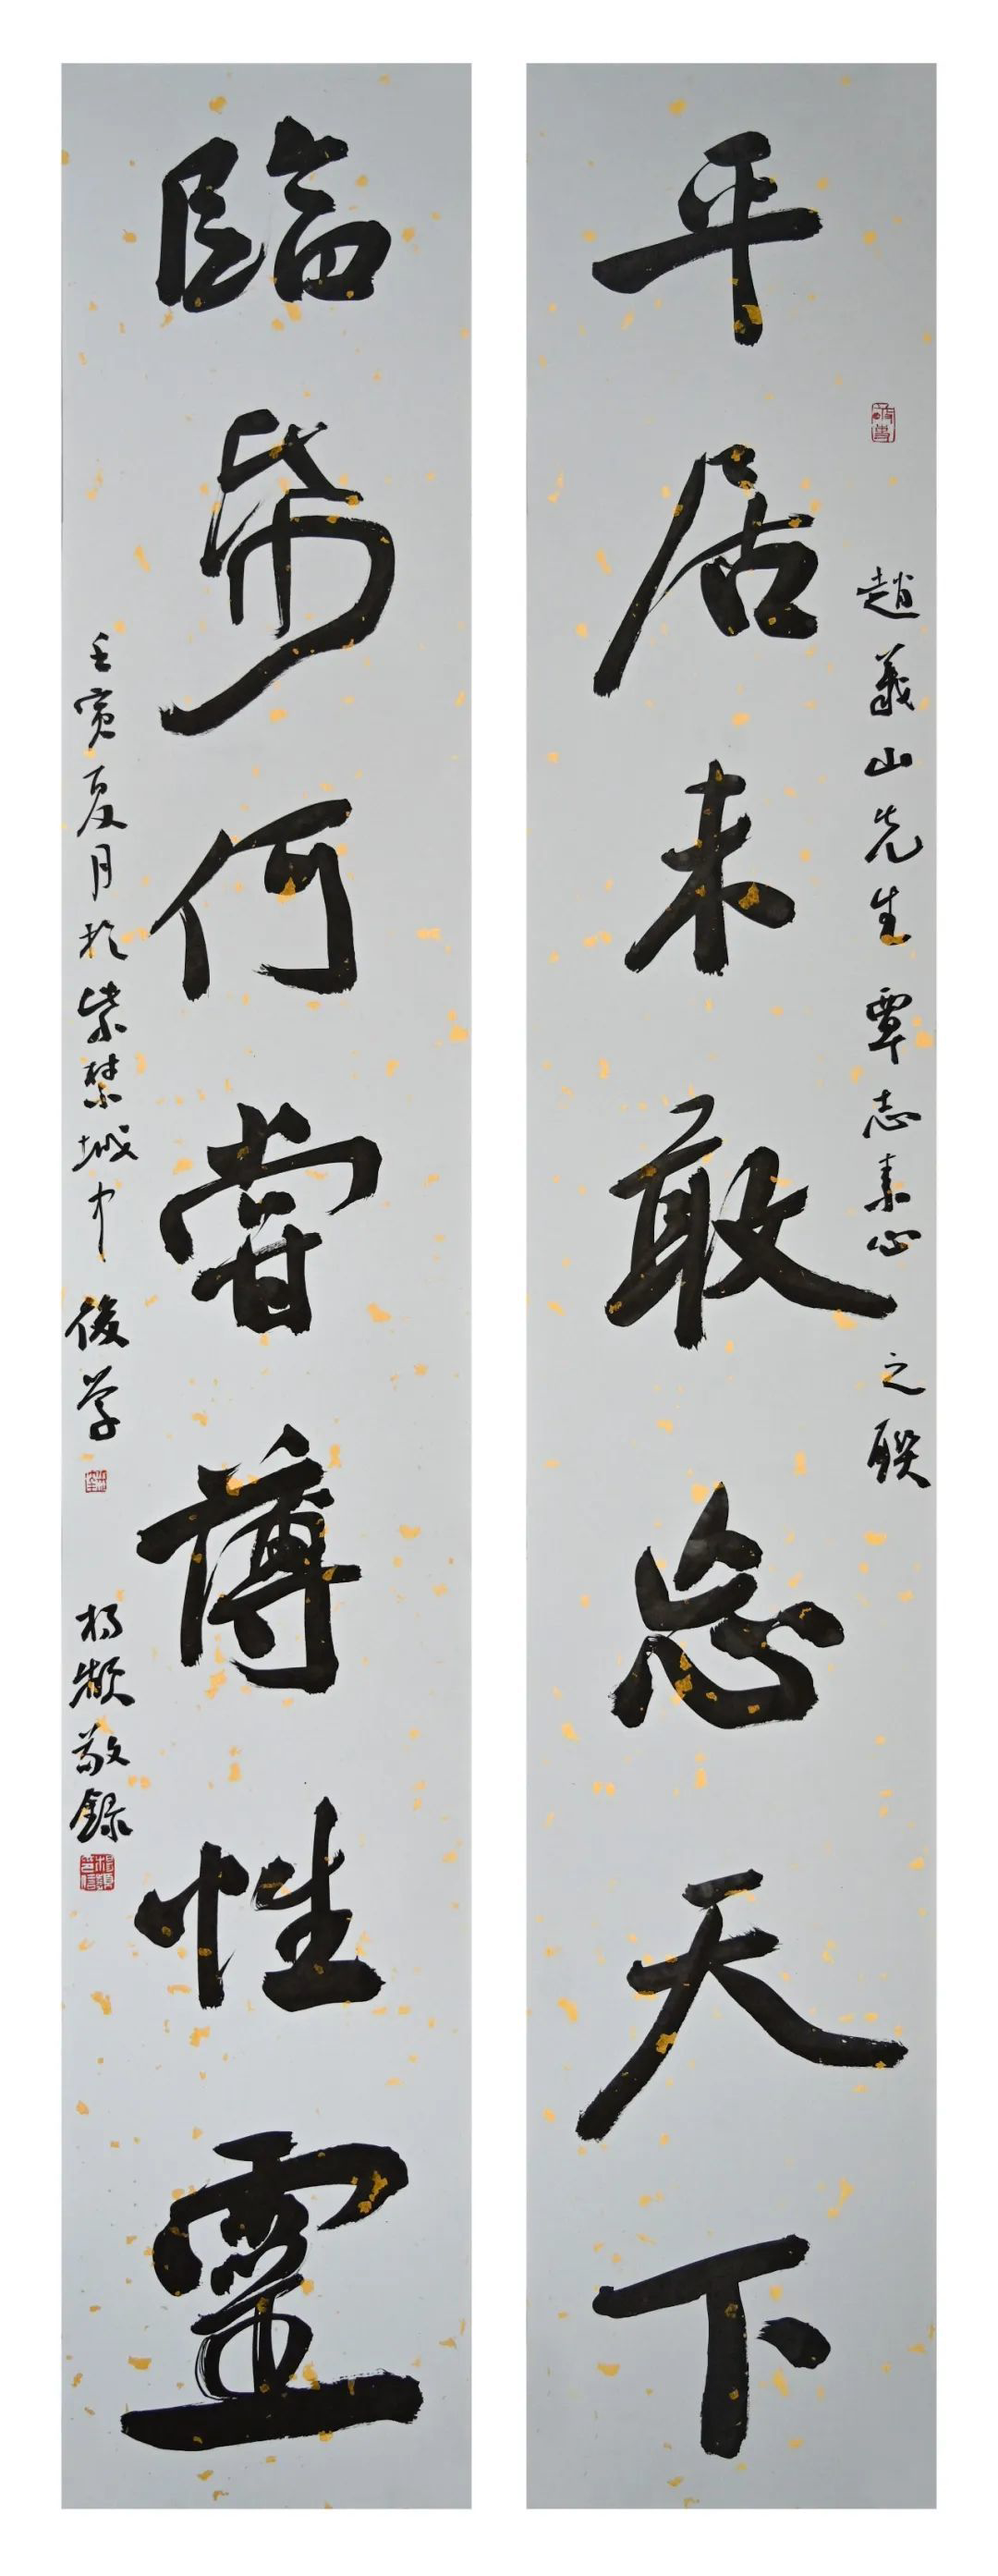 趙義山先生覃志素心之聯
平居未敢忘天下
臨帋何嘗薄性靈
壬寅夏月於紫禁城中後学
楊頻敬録